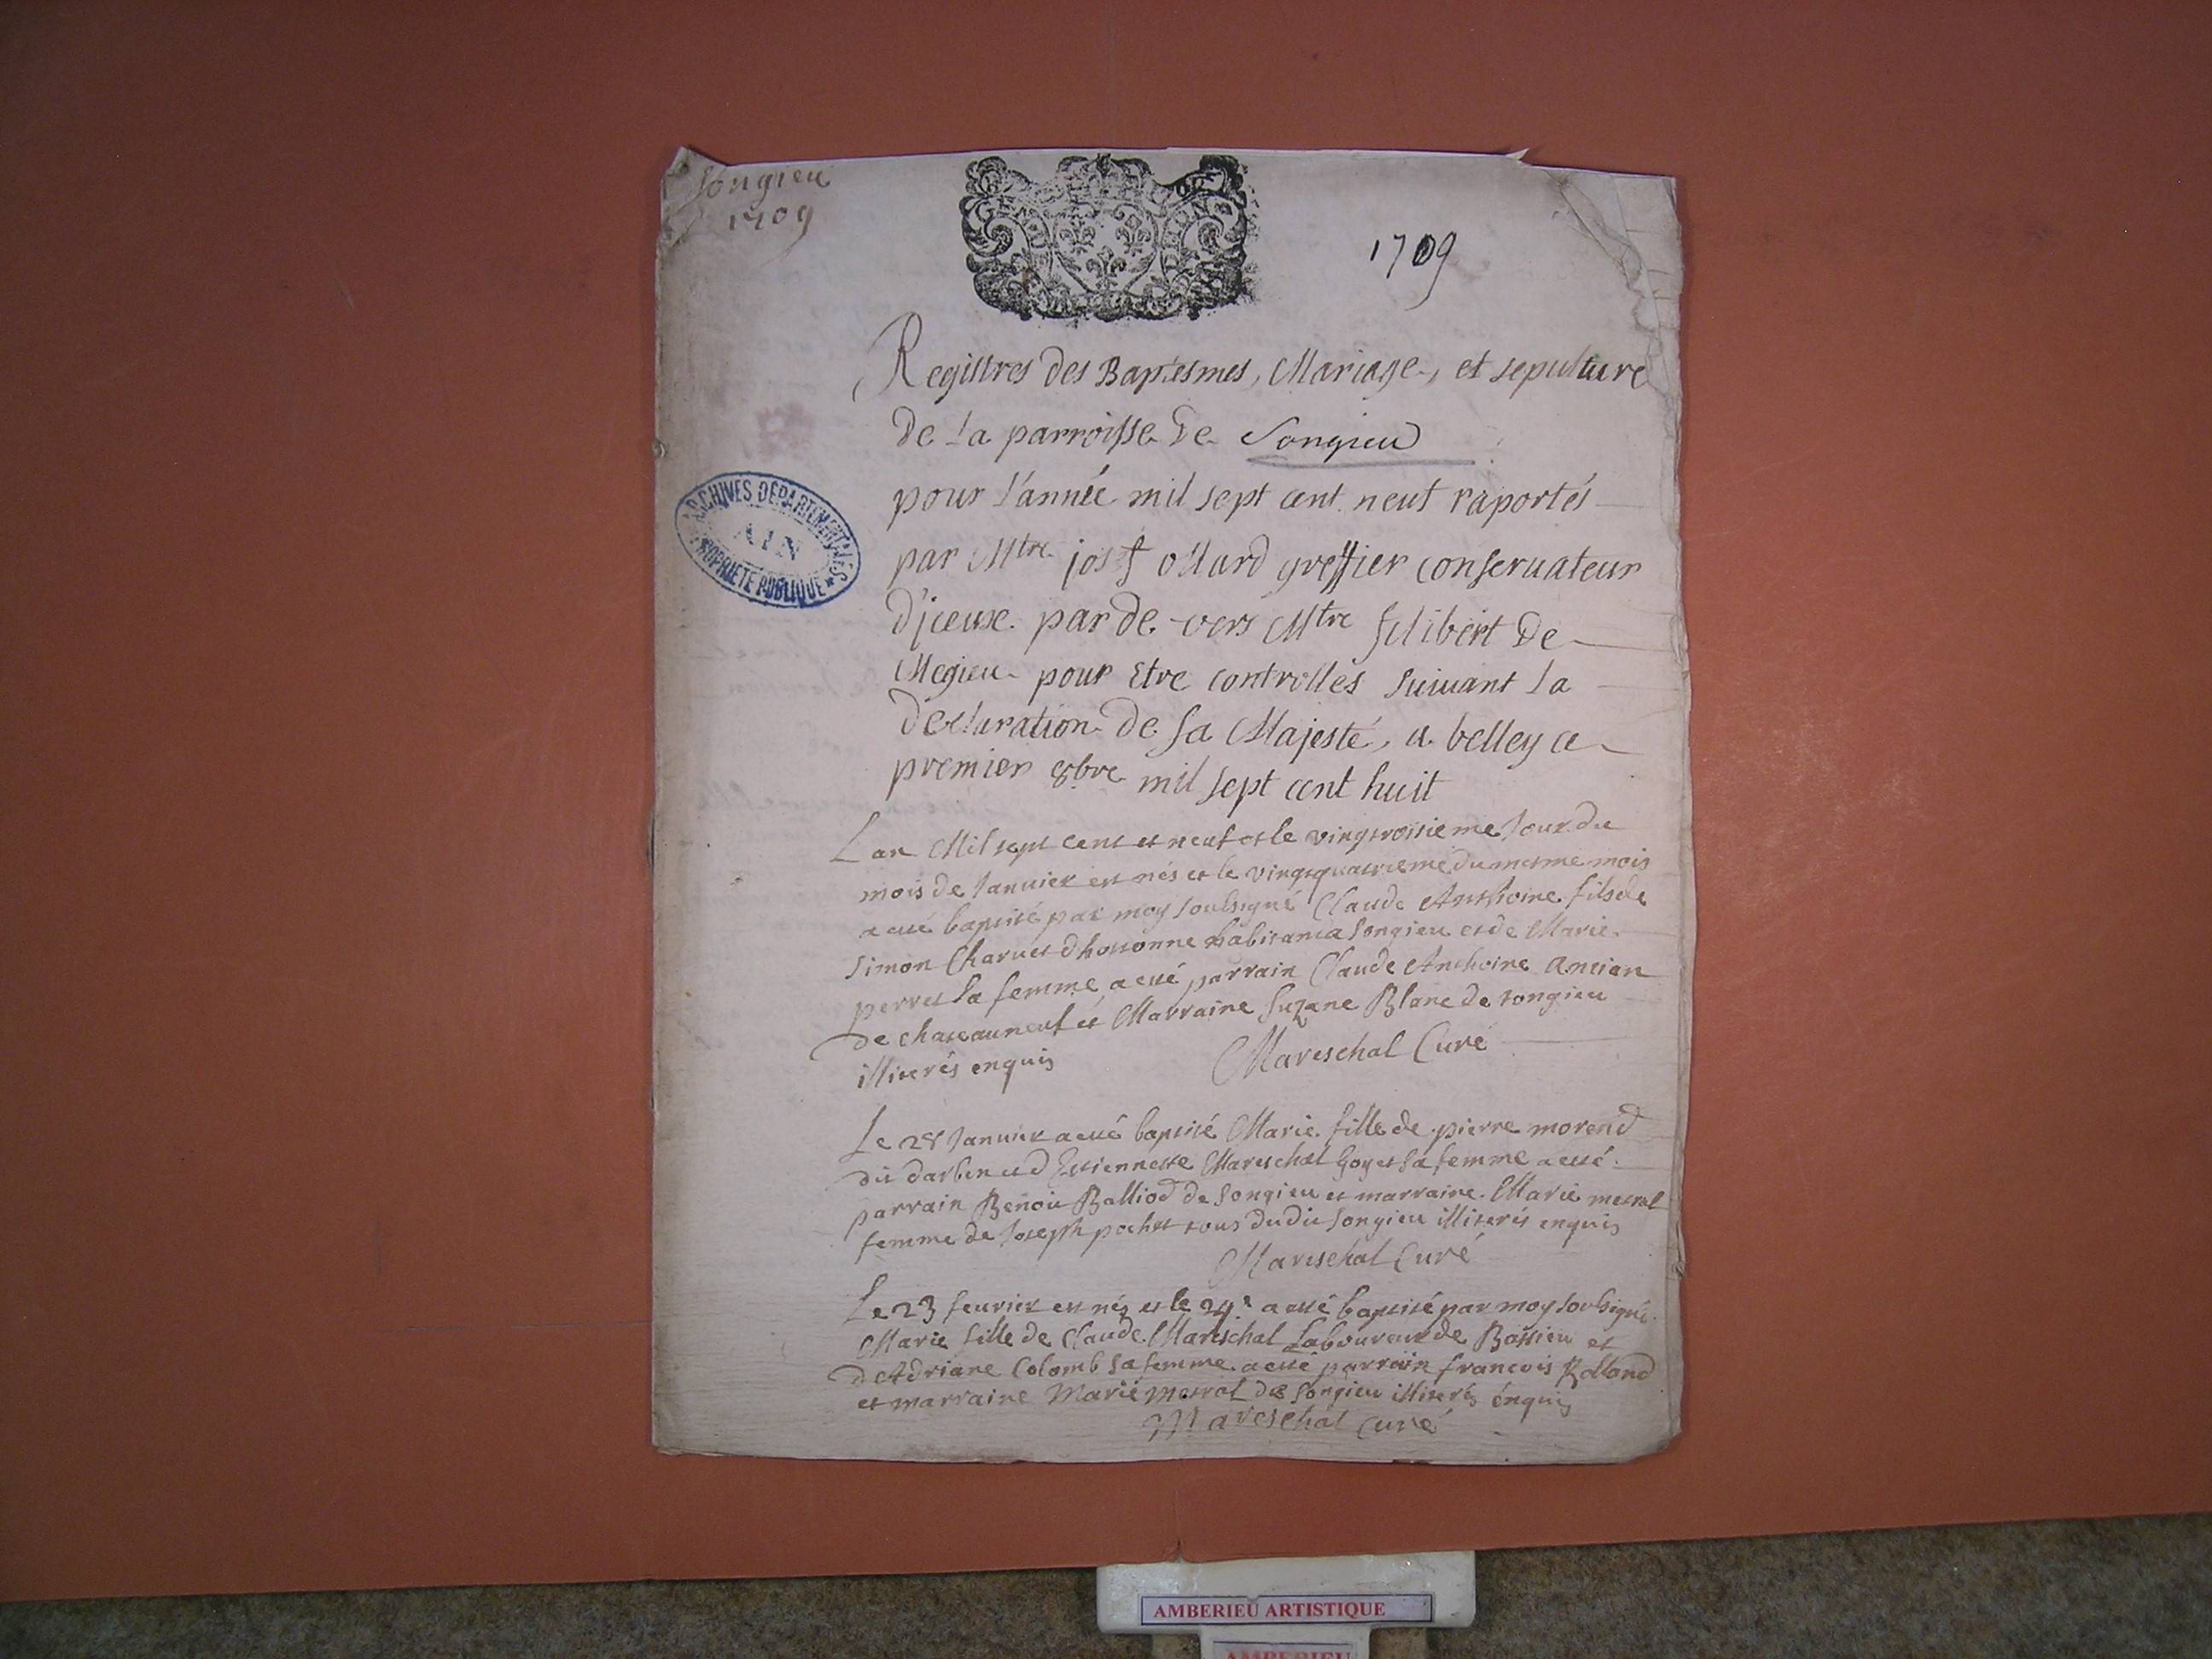 Songieu
1709
GEN
1709
Registres des Baptesmes, Mariage, et sepulture
de la parroisse de Songieu
pour l'année mil sept cent neuf raportés
par Mtre josf ollard greffier conservateur
d'jceux par de vers Mtre filibert de
Megieu pour Etre controllés suivant la
declaration de sa Majesté, a belley ce
premier 8bre mil sept cent huit
ARCHIVES DÉPARTEMENTALES
AIN
PROPRIÉTÉ PUBLIQUE
Lan Mil sept cent et neuf et le vingtroisieme Jour du
mois de Januier est nés et le vingtquatrieme du mesme mois
a esté baptisé par moy soubsigné Claude Anthoine fils de
simon Charuet dhotonne habitant a Songieu et de Marie
perret sa femme a esté parrain Claude Anthoine Antian
de chateauneuf et Marraine Suzane Blanc de songieu
illiterés enquis
Mareschal Curé
Le 28 Januier a esté baptisé Marie fille de pierre morend
dit darben et d Estiennette Mareschal Goyet sa femme a esté
parrain Benoit Balliod de Songieu et marraine Marie mesral
femme de Joseph pochet tous dudit songieu illiterés enquis
Mareschal Curé
Le 23 feurier est nés et le 24e a esté baptisé par moy soubsigné
Marie fille de Claude Mareschal Laboureur de Bossieu et
d Adriane Colomb sa femme a esté parrain francois Rolland
et marraine Marie mesral de Songieu illiterés enquis
Mareschal curé
AMBERIEU ARTISTIQUE
AMBERIEU